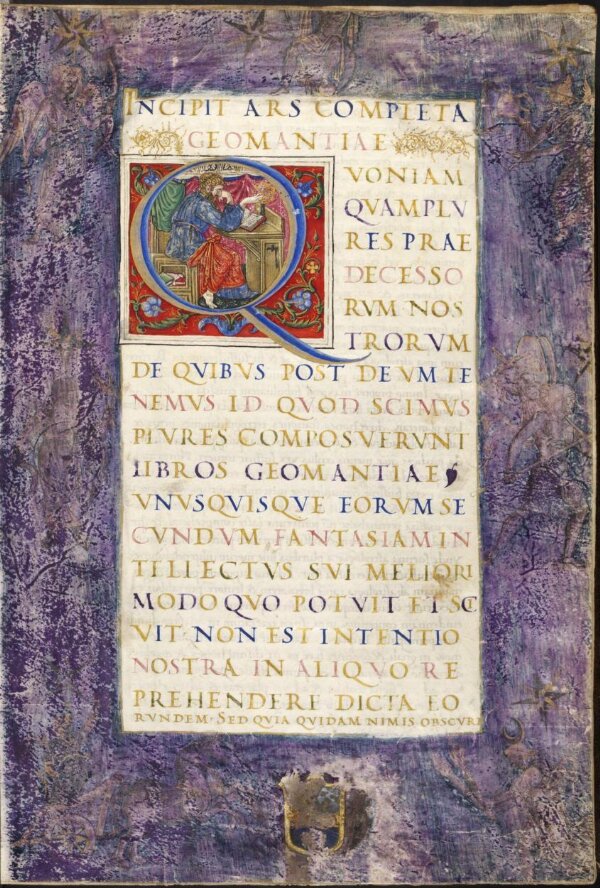 INCIPIT ARS COMPLETA
GEOMANTIAE
QVONIAM
QVAMPLV
RES PRAE
DECESSO
RVM NOS
TRORVM
DE QVIBVS POST DEVM TE
NEMVS ID QVOD SCIMVS
PLVRES COMPOSVERVNT
LIBROS GEOMANTIAE
VNVSQVISQVE EORVM SE
CVNDVM FANTASIAM IN
TELLECTVS SVI MELIORI
MODO QVO POTVIT ET SC
VIT· NON EST INTENTIO
NOSTRA IN ALIQVO RE
PREHENDERE DICTA EO
RVNDEM· SED QVIA QVIDAM NIMIS OBSCVRI